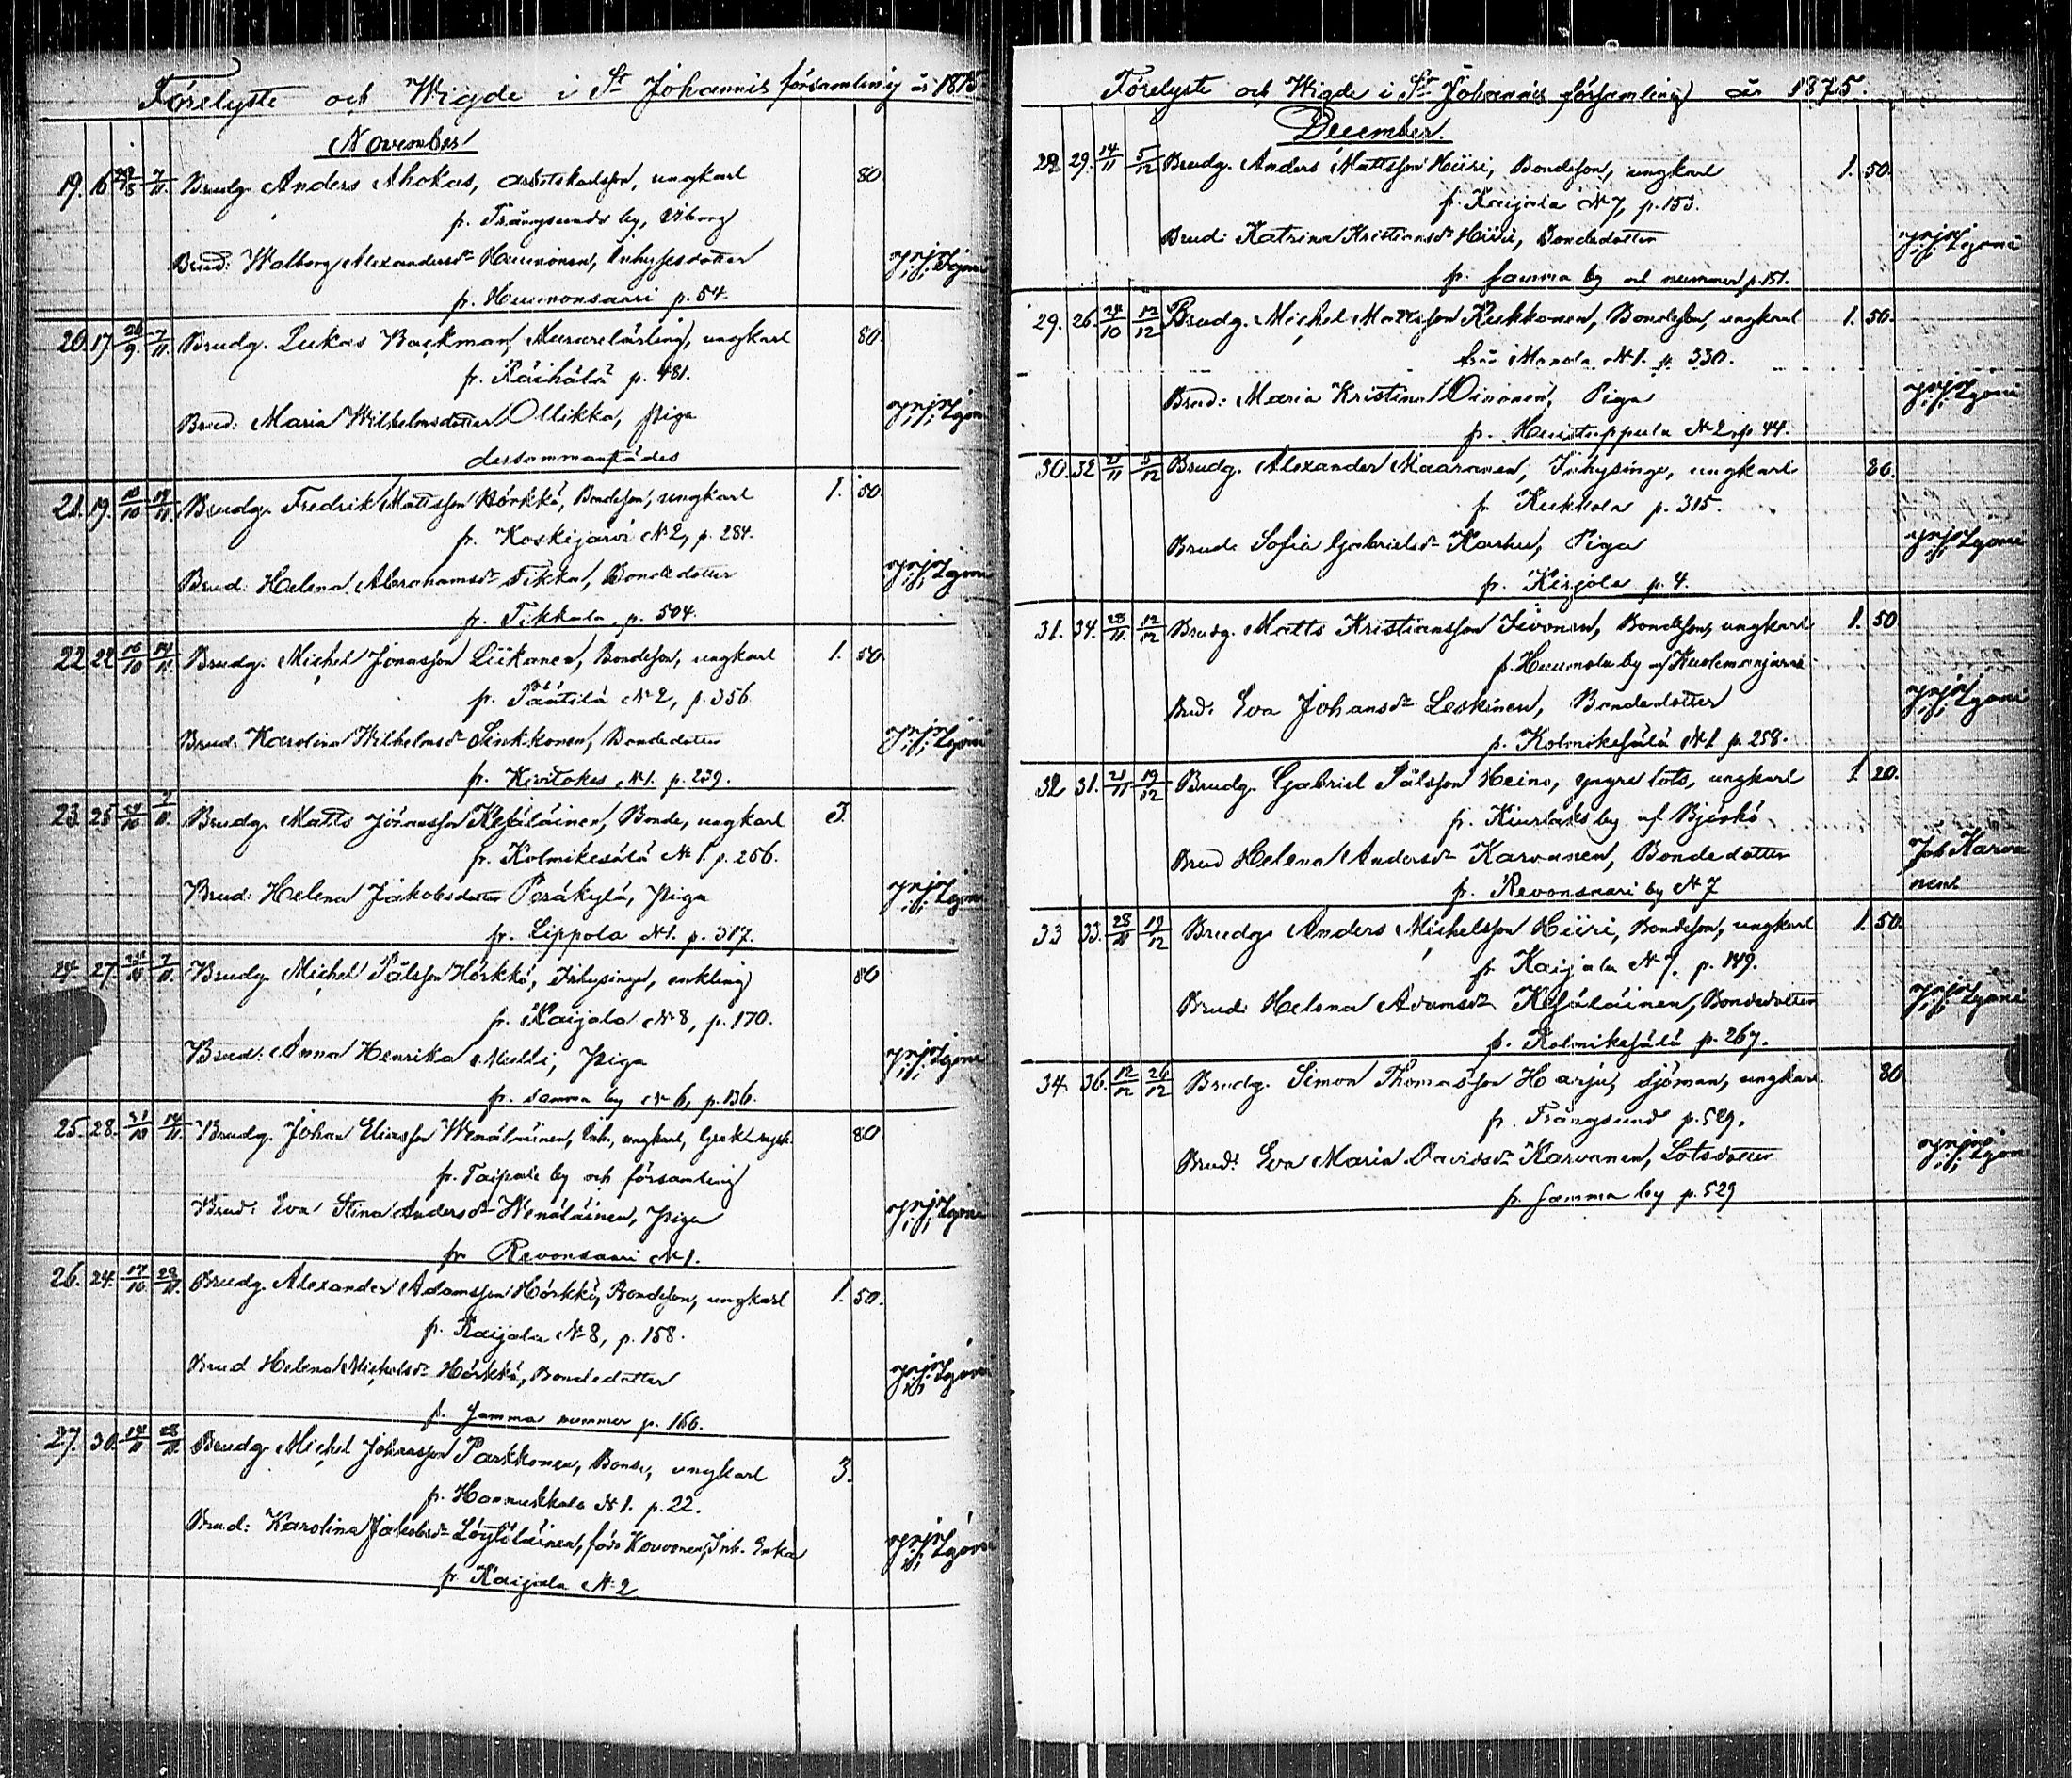 Förelyste och Wigde i St Johannis församling år 1875
November
19. 16 29/8 7/11 Brudg. Anders Ahokas, arbetskarlsson, ungkarl 80
fr. Trångsunds by, Viborg
Brud: Walborg Alexandersdr Huunonen, Inhysesdotter
fr. Huunonsaari p. 54.
20. 17. 26/9. 7/11. Brudg. Lukas Backman, Murarelärling, ungkarl 80.
fr. Räihälä p. 481.
Brud: Maria Wilhelmsdotter Ollikka, piga
dersammastädes
21. 19. 10/10 14/11. Brudg. Fredrik Mattsson Hörkkö, Bondeson, ungkarl 1. 50.
fr. Koskijärvi N 2, p. 284.
Brud: Helena Abrahamsdr Tikka, Bondedotter
fr. Tikkala, p. 504.
22 22 10/10 14/11. Brudg. Michel Jonasson Liikanen, Bondeson, ungkarl 1. 50
fr. Päätilä N 2, p. 356
Brud: Karolina Wilhelmsdr Sinkkonen, Bondedotter
fr. Kivitokes N 1. p. 239.
23. 25 /10 7/11. Brudg. Matts Jöransson Kesäläinen, Bonde, ungkarl 3.
fr. Kolmikesälä N 1. p. 256.
Brud: Helena Jakobsdotter Peräkylä, Piga
fr. Lippola N 1. p. 317.
24. 27. 7/11. Brudg. Michel Pålsson Hörkkö, Inhysinge, enkling 80
fr. Kaijala N 8, p. 170.
Brud: Anna Henrika Melli, Piga
fr. samma by N 6, p. 136.
25. 28. 31/10 14/11 Brudg. Johan Eliasson Wenäläinen, Inh., ungkarl, 80
fr. Taipale by och församling
Brud: Eva Stina Andersdr Wenäläinen, Piga
fr. Revonsaari N 1.
26. 24. 17/10 28/11. Brudg. Alexander Adamsson Hörkkö, Bondeson, ungkarl 1. 50.
fr. Kaijala N 8, p. 158.
Brud Helena Michelsdr Hörkkö, Bondedotter
f. samma nummer p. 160.
27. 30. 14/11 28/11. Brudg. Michel Johansson Parkkonen, Bonde, ungkarl 3.
fr. Hannukkala N 1. p. 22.
Brud: Karolina Jakobsdr Löytöläinen, född Kovonen, Inh. Enka
fr. Kaijala N 2
Förelyste och Wigde i St Johannis församling år 1875.
December.
28 29. 14/11 5/12 Brudg. Anders Mattsson Hiiri, Bondeson, ungkarl 1. 50.
fr. Kaijala N 7, p. 153.
Brud: Katrina Kristiansdr Hiiri, Bondedotter
fr. samma by och nummer p. 151.
29. 26. 24/10 12/12 Brudg. Michel Mattsson Kukkonen, Bondeson, ungkarl 1. 50.
från Manola N 1. p. 330.
Brud: Maria Kristina Oinonen, Piga
fr. Huistuppula N 2, p. 44.
30. 32 21/11 5/12 Brudg. Alexander Maaranen, Inhysinge, ungkarl 80.
fr. Kukkola p. 315.
Brud: Sofia Gabrielsdr Karhu, Piga
fr. Kirjola p. 4.
31. 34. 28/11. 12/12 Brudg. Matts Kristiansson Iivonen, Bondeson, ungkarl 1. 50
fr. Huumola by af Kuolemanjärvi
Brud: Eva Johansdr Leskinen, Bondedotter
fr. Kolmikesälä N 1 p. 258.
32 31. 21/11 19/12 Brudg. Gabriel Pålsson Heino, yngre lots, ungkarl 1. 20.
fr. Kiurlaks by af Björkö
Brud Helena Andersdr Karvanen, Bondedotter Joh Karva
fr. Revonsaari by N 7 nen
33 33. 28/11 19/12 Brudg. Anders Michelsson Hiiri, Bondeson, ungkarl 1. 50.
fr. Kaijala N 7. p. 149.
Brud: Helena Adamsdr Kesäläinen, Bondedotter
fr. Kolmikesälä p. 267.
34. 36. 12/12 26/12 Brudg. Simon Thomasson Harju, Sjöman, ungkarl 80
fr. Trångsund p. 529.
Brud: Eva Maria Davidsdr Karvanen, Lotsdotter
fr. samma by p. 529